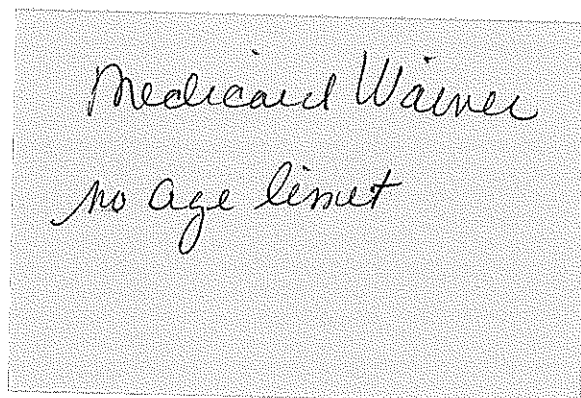 Medicaid Waiver
no age limit